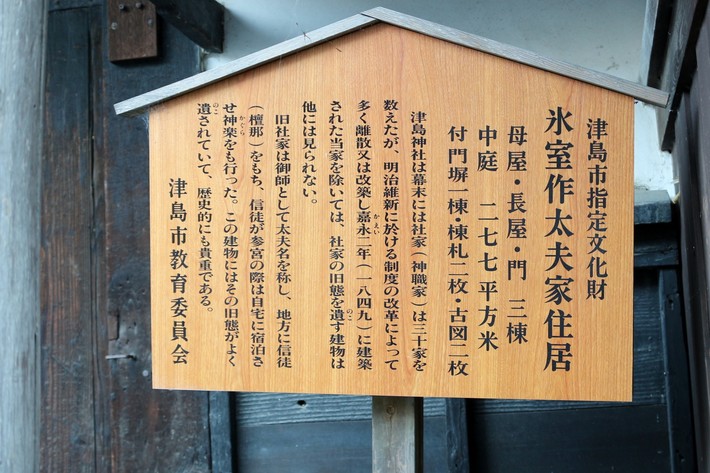 津島市指定文化財
氷室作太夫家住居
母屋・長屋・門 三棟
中庭 二七七平方米
付 門塀一棟・棟札二枚・古図二枚
津島神社は幕末には社家（神職家）は三十家を
数えたが、明治維新に於ける制度の改革によって
多く離散又は改築し嘉永二年（一八四九）に建築
された当家を除いては、社家の旧態を遺す建物は
他には見られない。
旧社家は御師として太夫名を称し、地方に信徒
（檀那）をもち、信徒が参宮の際は自宅に宿泊さ
せ神楽をも行った。この建物にはその旧態がよく
遺されていて、歴史的にも貴重である。
津島市教育委員会